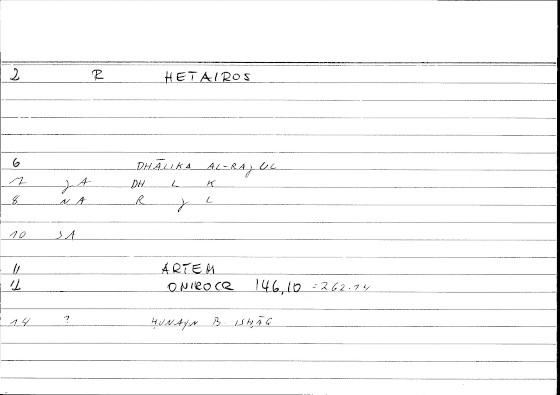 2 R HETAIROS
6 DHĀLIKA AL-RAJUL
7 JA DH L K
8 NA R J L
10 SA
11 ARTEM
12 ONIROCR 146,10 =262.14
14 ? ḤUNAYN B. ISḤĀG